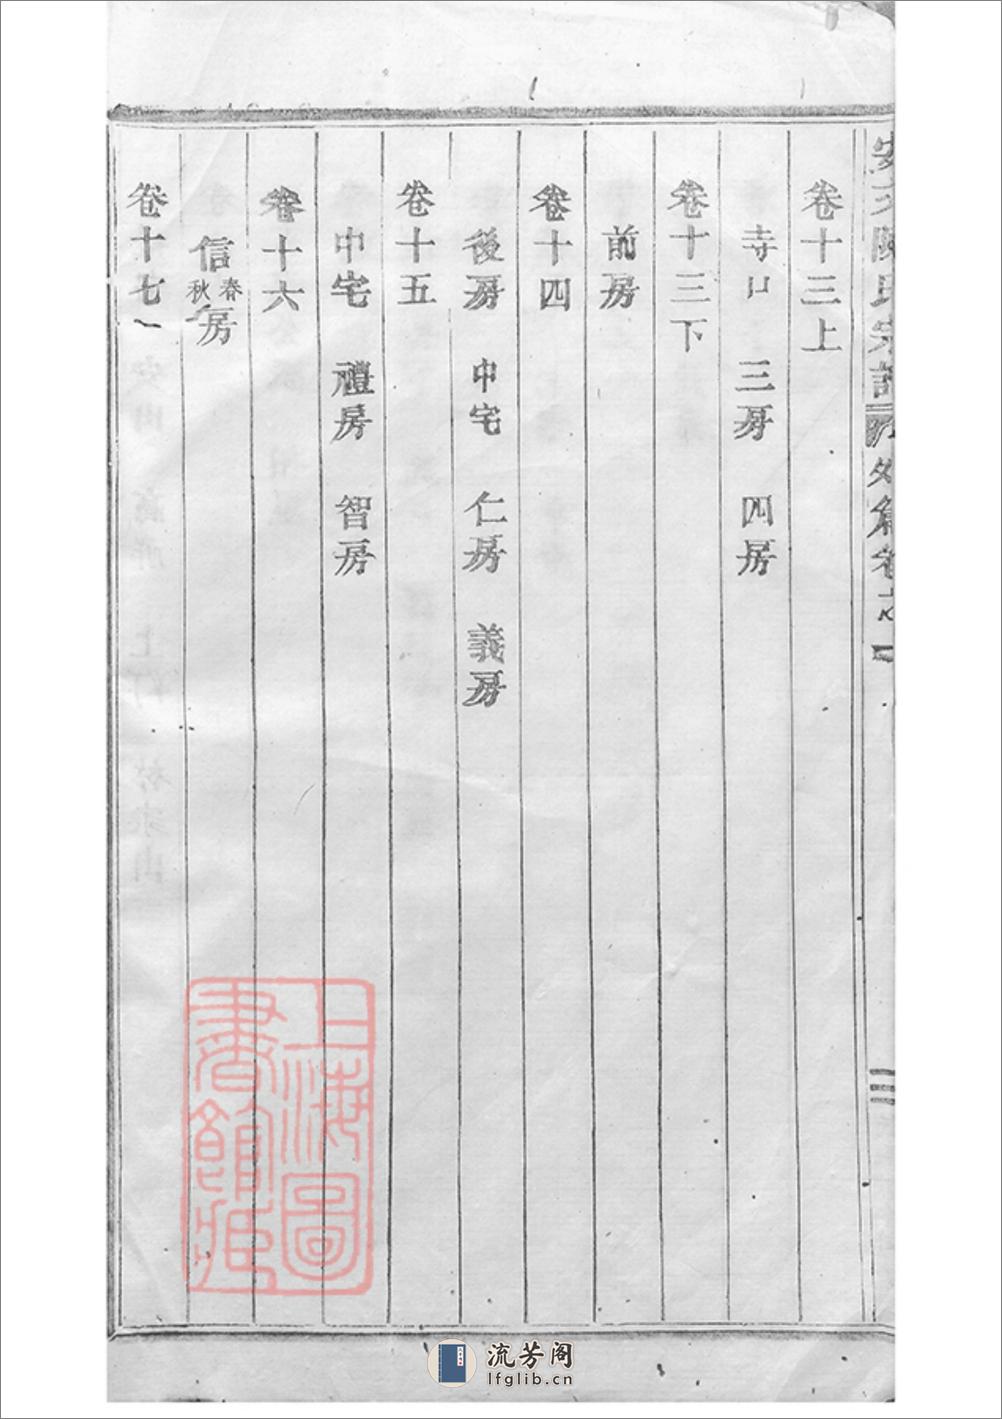 陳氏宗譜 外篇卷 三
卷十三上
寺口 三房 四房
卷十三下
前房
卷十四
後房 中宅 仁房 義房
卷十五
中宅 禮房 智房
卷十六
信春秋房
卷十七
上海圖書館藏
流芳阁
lfglib.cn